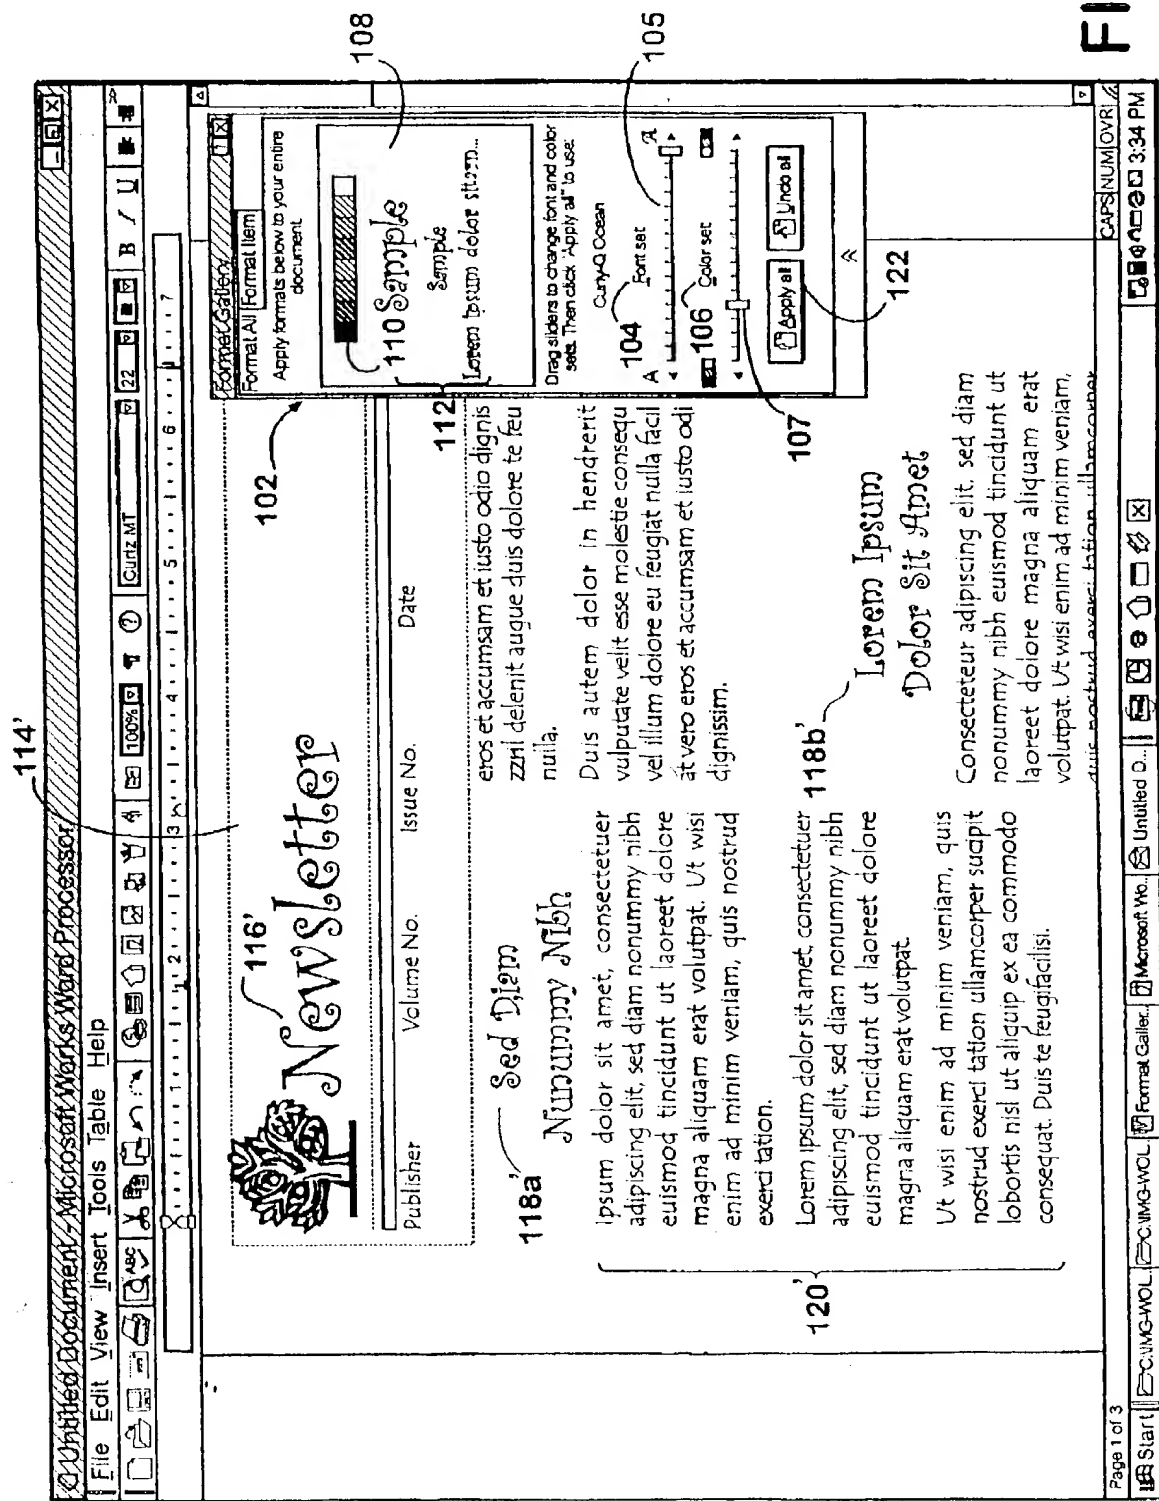 114'
Untitled Document - Microsoft Works Word Processor
File Edit View Insert Tools Table Help
ABC
100%
Curlz MT
22
B I U
1 2 3 4 5 6 7
116'
Newsletter
Publisher Volume No. Issue No. Date
118a'
Sed Diam
Nunummy Nibh
Ipsum dolor sit amet, consectetuer
adipiscing elit, sed diam nonummy nibh
euismod tincidunt ut laoreet dolore
magna aliquam erat volutpat. Ut wisi
enim ad minim veniam, quis nostrud
exerci tation.
120'
Lorem ipsum dolor sit amet, consectetuer
adipiscing elit, sed diam nonummy nibh
euismod tincidunt ut laoreet dolore
magna aliquam erat volutpat.
Ut wisi enim ad minim veniam, quis
nostrud exerci tation ullamcorper suscipit
lobortis nisl ut aliquip ex ea commodo
consequat. Duis te feugifacilisi.
eros et accumsam et iusto odio dignis
zzril delenit augue duis dolore te feu
nulla.
Duis autem dolor in hendrerit
vulputate velit esse molestie consequ
vel illum dolore eu feugiat nulla facil
at vero eros et accumsam et iusto odi
dignissim.
118b'
Lorem Ipsum
Dolor Sit Amet
Consecteteur adipiscing elit, sed diam
nonummy nibh euismod tincidunt ut
laoreet dolore magna aliquam erat
volutpat. Ut wisi enim ad minim veniam,
quis nostrud exerci tation ullamcorper
102
Format Gallery
Format All Format Item
Apply formats below to your entire
document.
108
110
Sample
Sample
Lorem ipsum dolor sit am...
112
Drag sliders to change font and color
sets. Then click "Apply all" to use.
Curly-Q Ocean
104
Font set
A A
105
106
Color set
107
Apply all
Undo all
122
Page 1 of 3
CAPS NUM OVR
Start
C:\IMG-WOL..
C:\IMG-WOL..
Format Galler..
Microsoft Wo..
Untitled D...
3:34 PM
FI